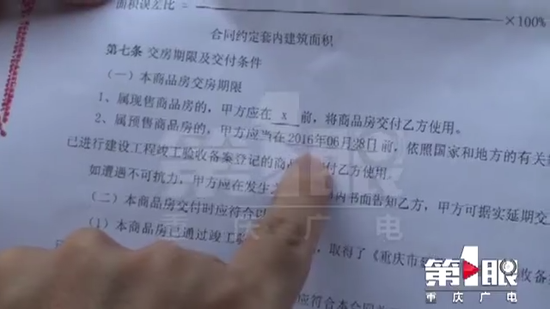 面积误差比＝
×100%
合同约定套内建筑面积
第七条 交房期限及交付条件
（一）本商品房交房期限
1、属现售商品房的，甲方应在 x 前，将商品房交付乙方使用。
2、属预售商品房的，甲方应当在2016年06月28日前，依照国家和地方的有关
已进行建设工程竣工验收备案登记的商 付乙方使用。
如遭遇不可抗力，甲方应在发生之 内书面告知乙方，甲方可据实延期交
（二）本商品房交付时应符合以
（1）本商品房已通过竣工验 ，取得了《重庆市 收备
应符合本合同
重庆广电
第1眼
重庆广电